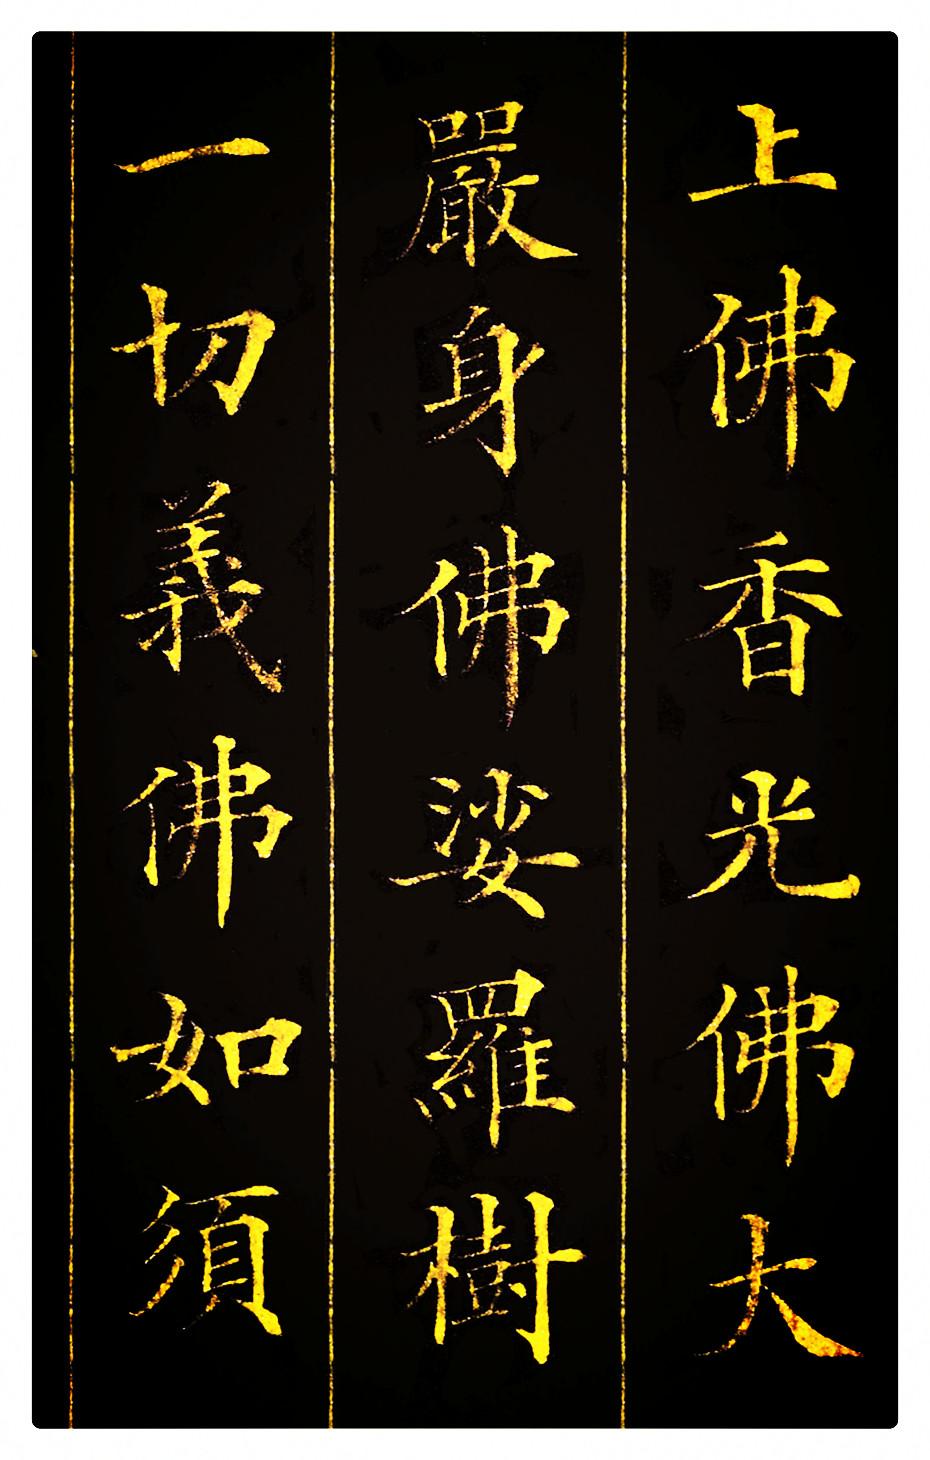 上佛香光佛大
嚴身佛娑羅樹
一切義佛如須